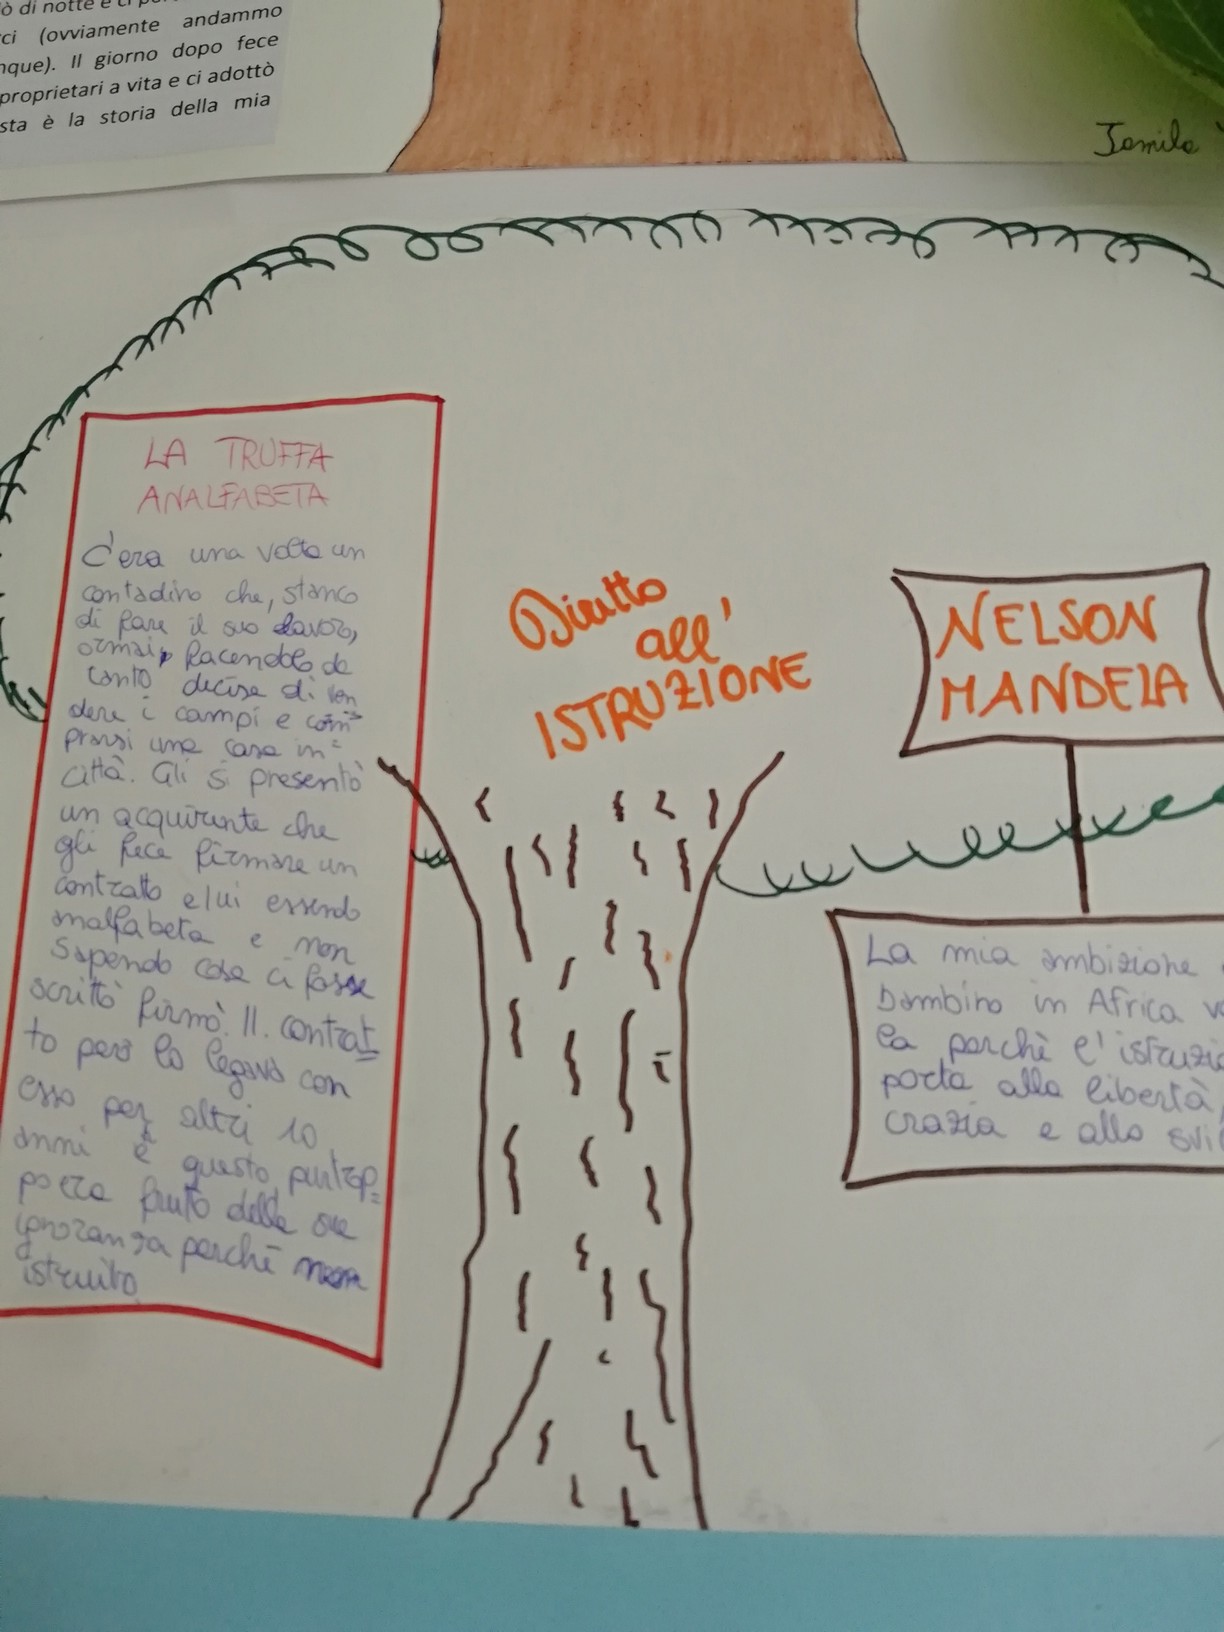 ò di notte e ci
ci (ovviamente andammo
nque). Il giorno dopo fece
proprietari a vita e ci adottò
sta è la storia della mia
Jamila
LA TRUFFA
ANALFABETA
C'era una volta un
contadino che, stanco
di fare il suo lavoro,
ormai, facendolo da
tanto, decise di ven
dere i campi e com=
prarsi una casa in=
città. Gli si presentò
un acquirente che
gli fece firmare un
contratto e lui essendo
analfabeta e non
sapendo cosa ci fosse
scritto firmò. Il contrat
to però lo legava con
esso per altri 10
anni è questo, purtrop=
po era frutto della sua
ignoranza perchè non
istruito
Diritto
all'
ISTRUZIONE
NELSON
MANDELA
La mia ambizione
bambino in Africa
la perchè l'istruzio
porta alla libertà,
crazia e allo svil